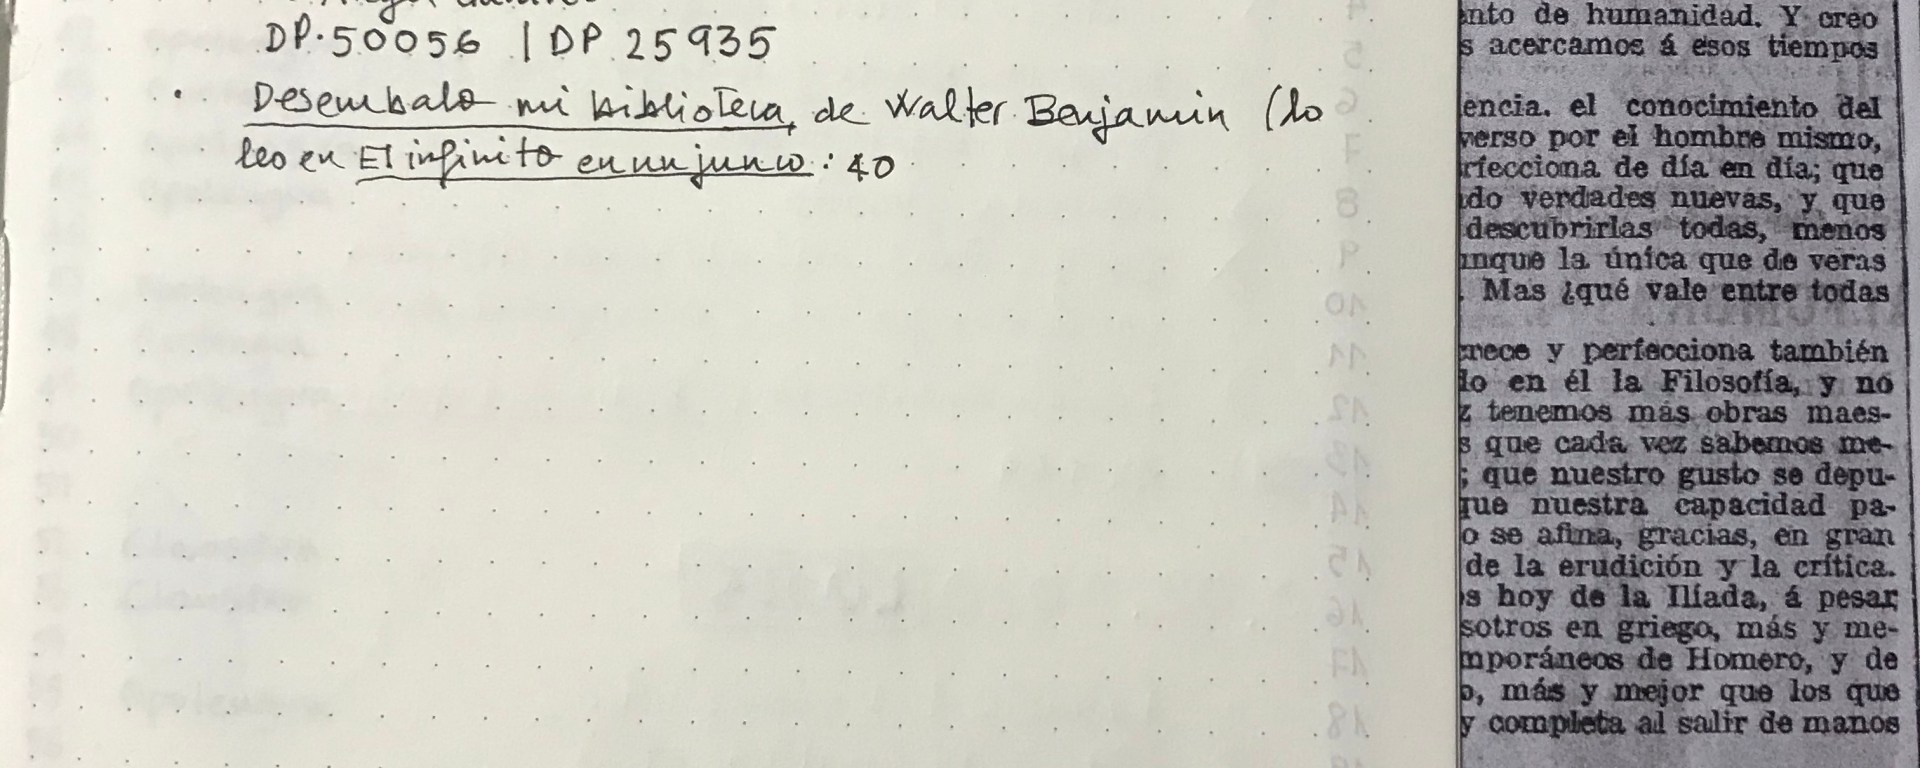 DP.50056 | DP 25935
· Desembalo mi biblioteca, de Walter Benjamin (lo
leo en El infinito en un junco: 40
nto de humanidad. Y creo
s acercamos á esos tiempos
encia. el conocimiento del
verso por el hombre mismo,
rfecciona de día en día; que
do verdades nuevas, y que
descubrirlas todas, menos
nque la única que de veras
. Mas ¿qué vale entre todas
rece y perfecciona también
lo en él la Filosofía, y no
z tenemos más obras maes-
s que cada vez sabemos me-
; que nuestro gusto se depu-
que nuestra capacidad pa-
o se afina, gracias, en gran
de la erudición y la crítica.
s hoy de la Ilíada, á pesar
sotros en griego, más y me-
mporáneos de Homero, y de
o, más y mejor que los que
y completa al salir de manos
5
6
7
8
9
10
11
12
13
14
15
16
17
18